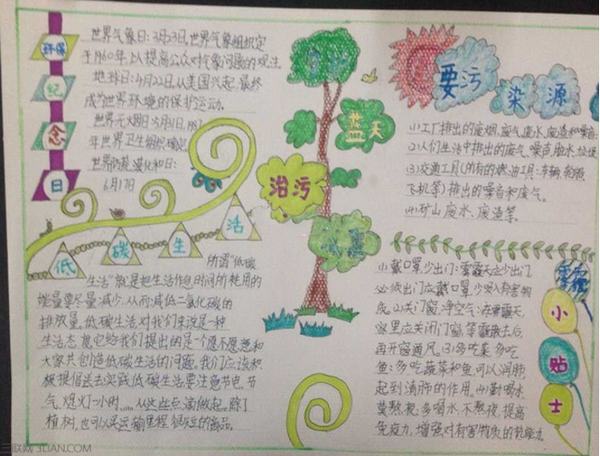 环保
纪
念
日
世界气象日：3月23日，世界气象组织定
于1960年，以提高公众对气象问题的观注。
地球日：4月22日，从美国兴起，最终
成为世界环境的保护运动。
世界无烟日：5月31日，1987
年世界卫生组织
世界防 漠化和日：
6月17日
低
碳
生
活
所谓“低碳
生活”就是把生活作息时间所耗用的
能量要尽量减少，从而减低二氧化碳的
排放量。低碳生活对我们来说是一种
生活态 ，它给我们提出的是个愿不愿意和
大家共创造低碳生活的问题。我们应该积
极提倡去实践低碳生活要注意节电、节
气、熄灯一小时……从这些点滴做起。除了
植树，也可以 运输里程 的商品。
蓝天
治污
要污
染源
(1)工厂排出的废烟、废气、废水、废渣和噪音
(2)人们生活中排出的废气、噪音、脏水、垃圾
(3)交通工具(所有的燃油工具：车辆、轮船、
飞机等)排出的噪音和废气。
(4)矿山废水、废渣等。
雾霾
小
贴
士
(1)戴口罩，少出门：雾霾天应少出门
必须出门应戴口罩，少吸入有害物
质。(2)关门窗，净空气：在雾霾天，
这里应关闭门窗，等雾霾散去后，
再开窗通风。(3)多吃菜，多吃
鱼：多吃蔬菜和鱼可以消肺
起到清肺的作用。(4)勤喝水
莫熬夜：多喝水，不熬夜，提高
免疫力，增强对有害物质的抵御力
三联网 3LIAN.COM